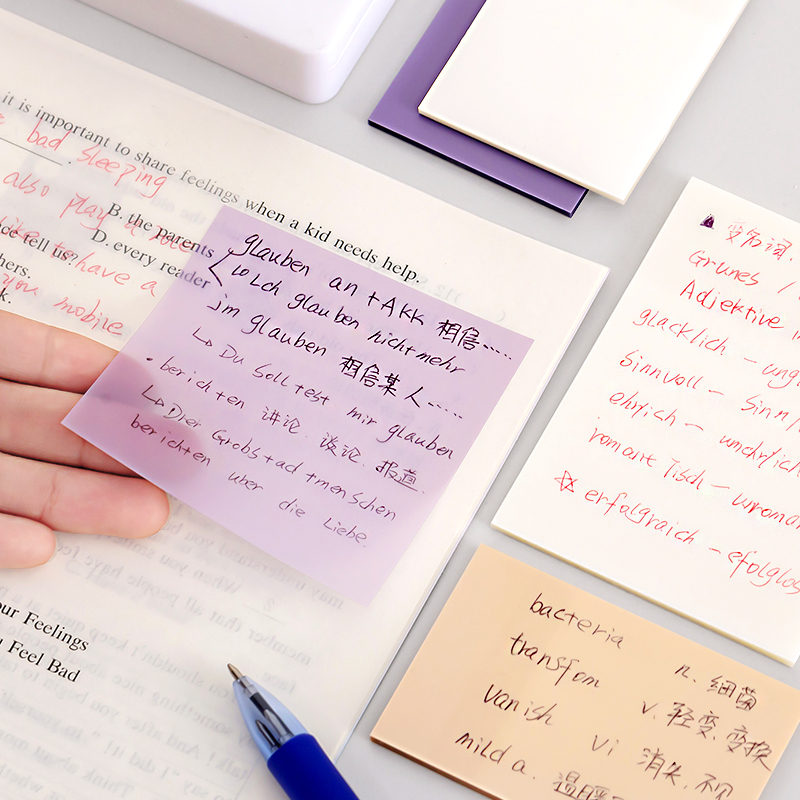 it is important to share feelings when a kid needs help.
bad sleeping
B. the parents
also play
D. every reader
ce tell us?
like to have a
hers.
you mobile
k.
glauben an + AKK 相信……
Lch glauben nicht mehr
im glauben 相信某人……
↳ Du Solltest mir glauben
• berichten 讲论. 谈论. 报道.
↳ Dier Grobstad tmenschen
berichten uber die Liebe.
our Feelings
u Feel Bad
变名词.
Grunes /
Adjektive i
glacklich – ung
Sinnvoll – Sinn
ehrlich – unehrlich
romant Tisch – uroman
☆ erfolgraich – efolglos
bacteria n. 细菌
transfom v. 轻变. 变换
vanish vi 消失. 不见
mild a. 温